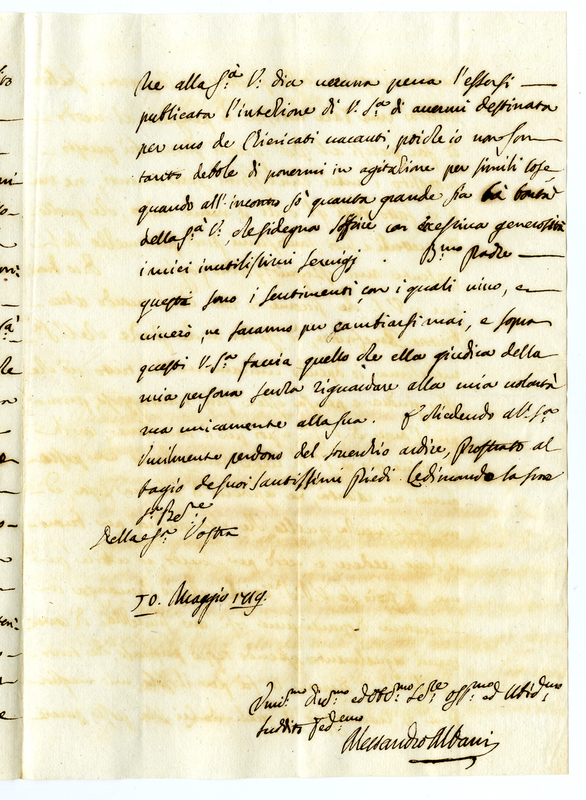 Ne alla S.tà V. dia veruna pena l'essersi
publicata l'intezione di V. S.tà di avermi destinata
per uno de Chiericati vacanti, poiche io non son
tanto debole di ponermi in agitazione per simili cose,
quando all'incontro sò quanta grande sia la bontà
della S.tà V., che si degna soffrire con eccessiva generosità
i miei inutilissimi servigj. B.mo Padre
questi sono i sentimenti, con i quali vivo, e
viverò, ne saranno per cambiarsi mai, e sopra
questi V. S.tà faccia quello che ella giudica della
mia persona senza riguardare alla mia volontà
ma unicamente alla sua. E chiedendo a V. S.tà
Umilmente perdono del soverchio ardire, prostrato al
bagio de suoi santissimi Piedi
Della S.tà Vostra
30. Maggio 1719.
Umil.mo Div.mo ed Obl.mo Ser.re Oss.mo ed Ubid.mo
suddito Fed.mo
Alessandro Albani